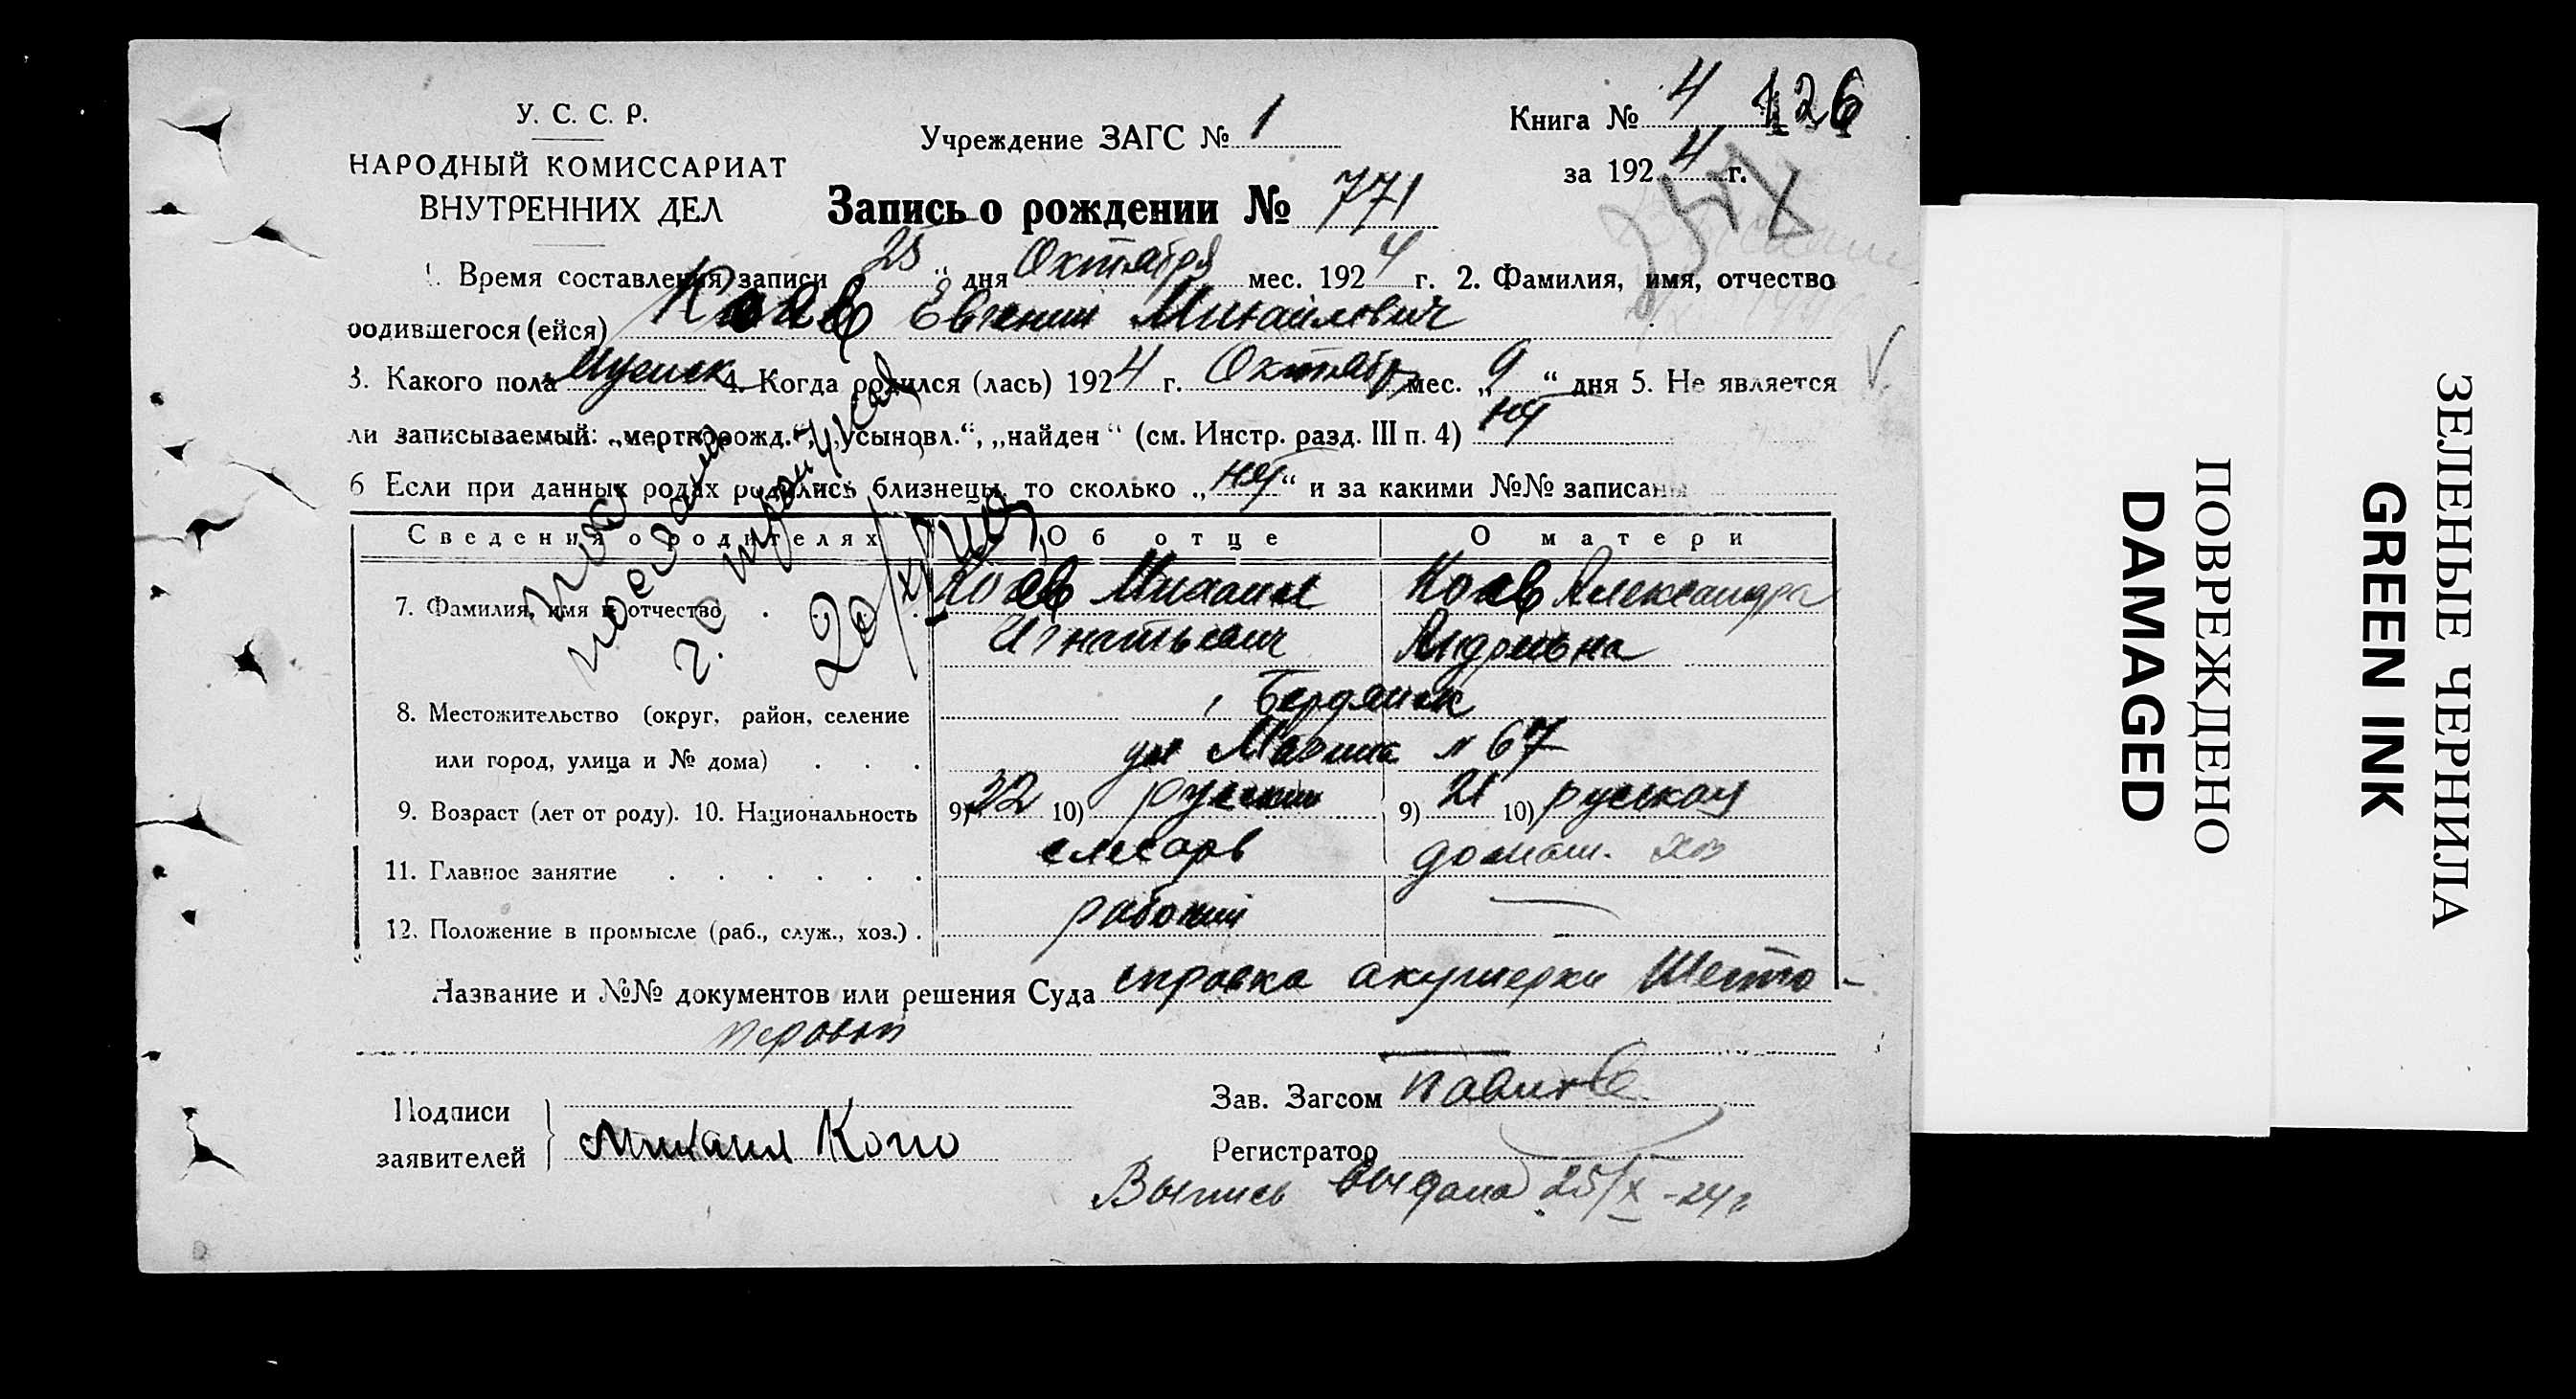 У. С. С. Р.
НАРОДНЫЙ КОМИССАРИАТ
ВНУТРЕННИХ ДЕЛ
Учреждение ЗАГС № 1
Книга № 4 126
за 1924 г.
Запись о рождении № 771
1. Время составления записи 25 “ дня Октября мес. 1924 г. 2. Фамилия, имя, отчество
родившегося (ейся) Евгений Михайлович
3. Какого пола Мужск 4. Когда родился (лась) 1924 г. Октябр мес. „ 9 “ дня 5. Не является
ли записываемый: „мертворожд.“, „усыновл.“, „найден“ (см. Инстр. разд. III п. 4) нет
6 Если при данных родах родились близнецы, то сколько „ нет “ и за какими №№ записаны
Сведения о родителях Об отце О матери
7. Фамилия, имя и отчество Михаил Александра
Игнатьевич Андреевна
8. Местожительство (округ, район, селение Бердянск
или город, улица и № дома) ул № 67
9. Возраст (лет от роду). 10. Национальность 9) 22 10) русский 9) 21 10) русская
11. Главное занятие слесарь домаш. хоз
12. Положение в промысле (раб., служ., хоз.) рабочий —
Название и №№ документов или решения Суда справка акушерки Шесто-
перовой
Подписи
заявителей
Михаил
Зав. Загсом
Регистратор
Выпись выдана 25/X-24 г
20/XI
ПОВРЕЖДЕНО
DAMAGED
ЗЕЛЕНЫЕ ЧЕРНИЛА
GREEN INK